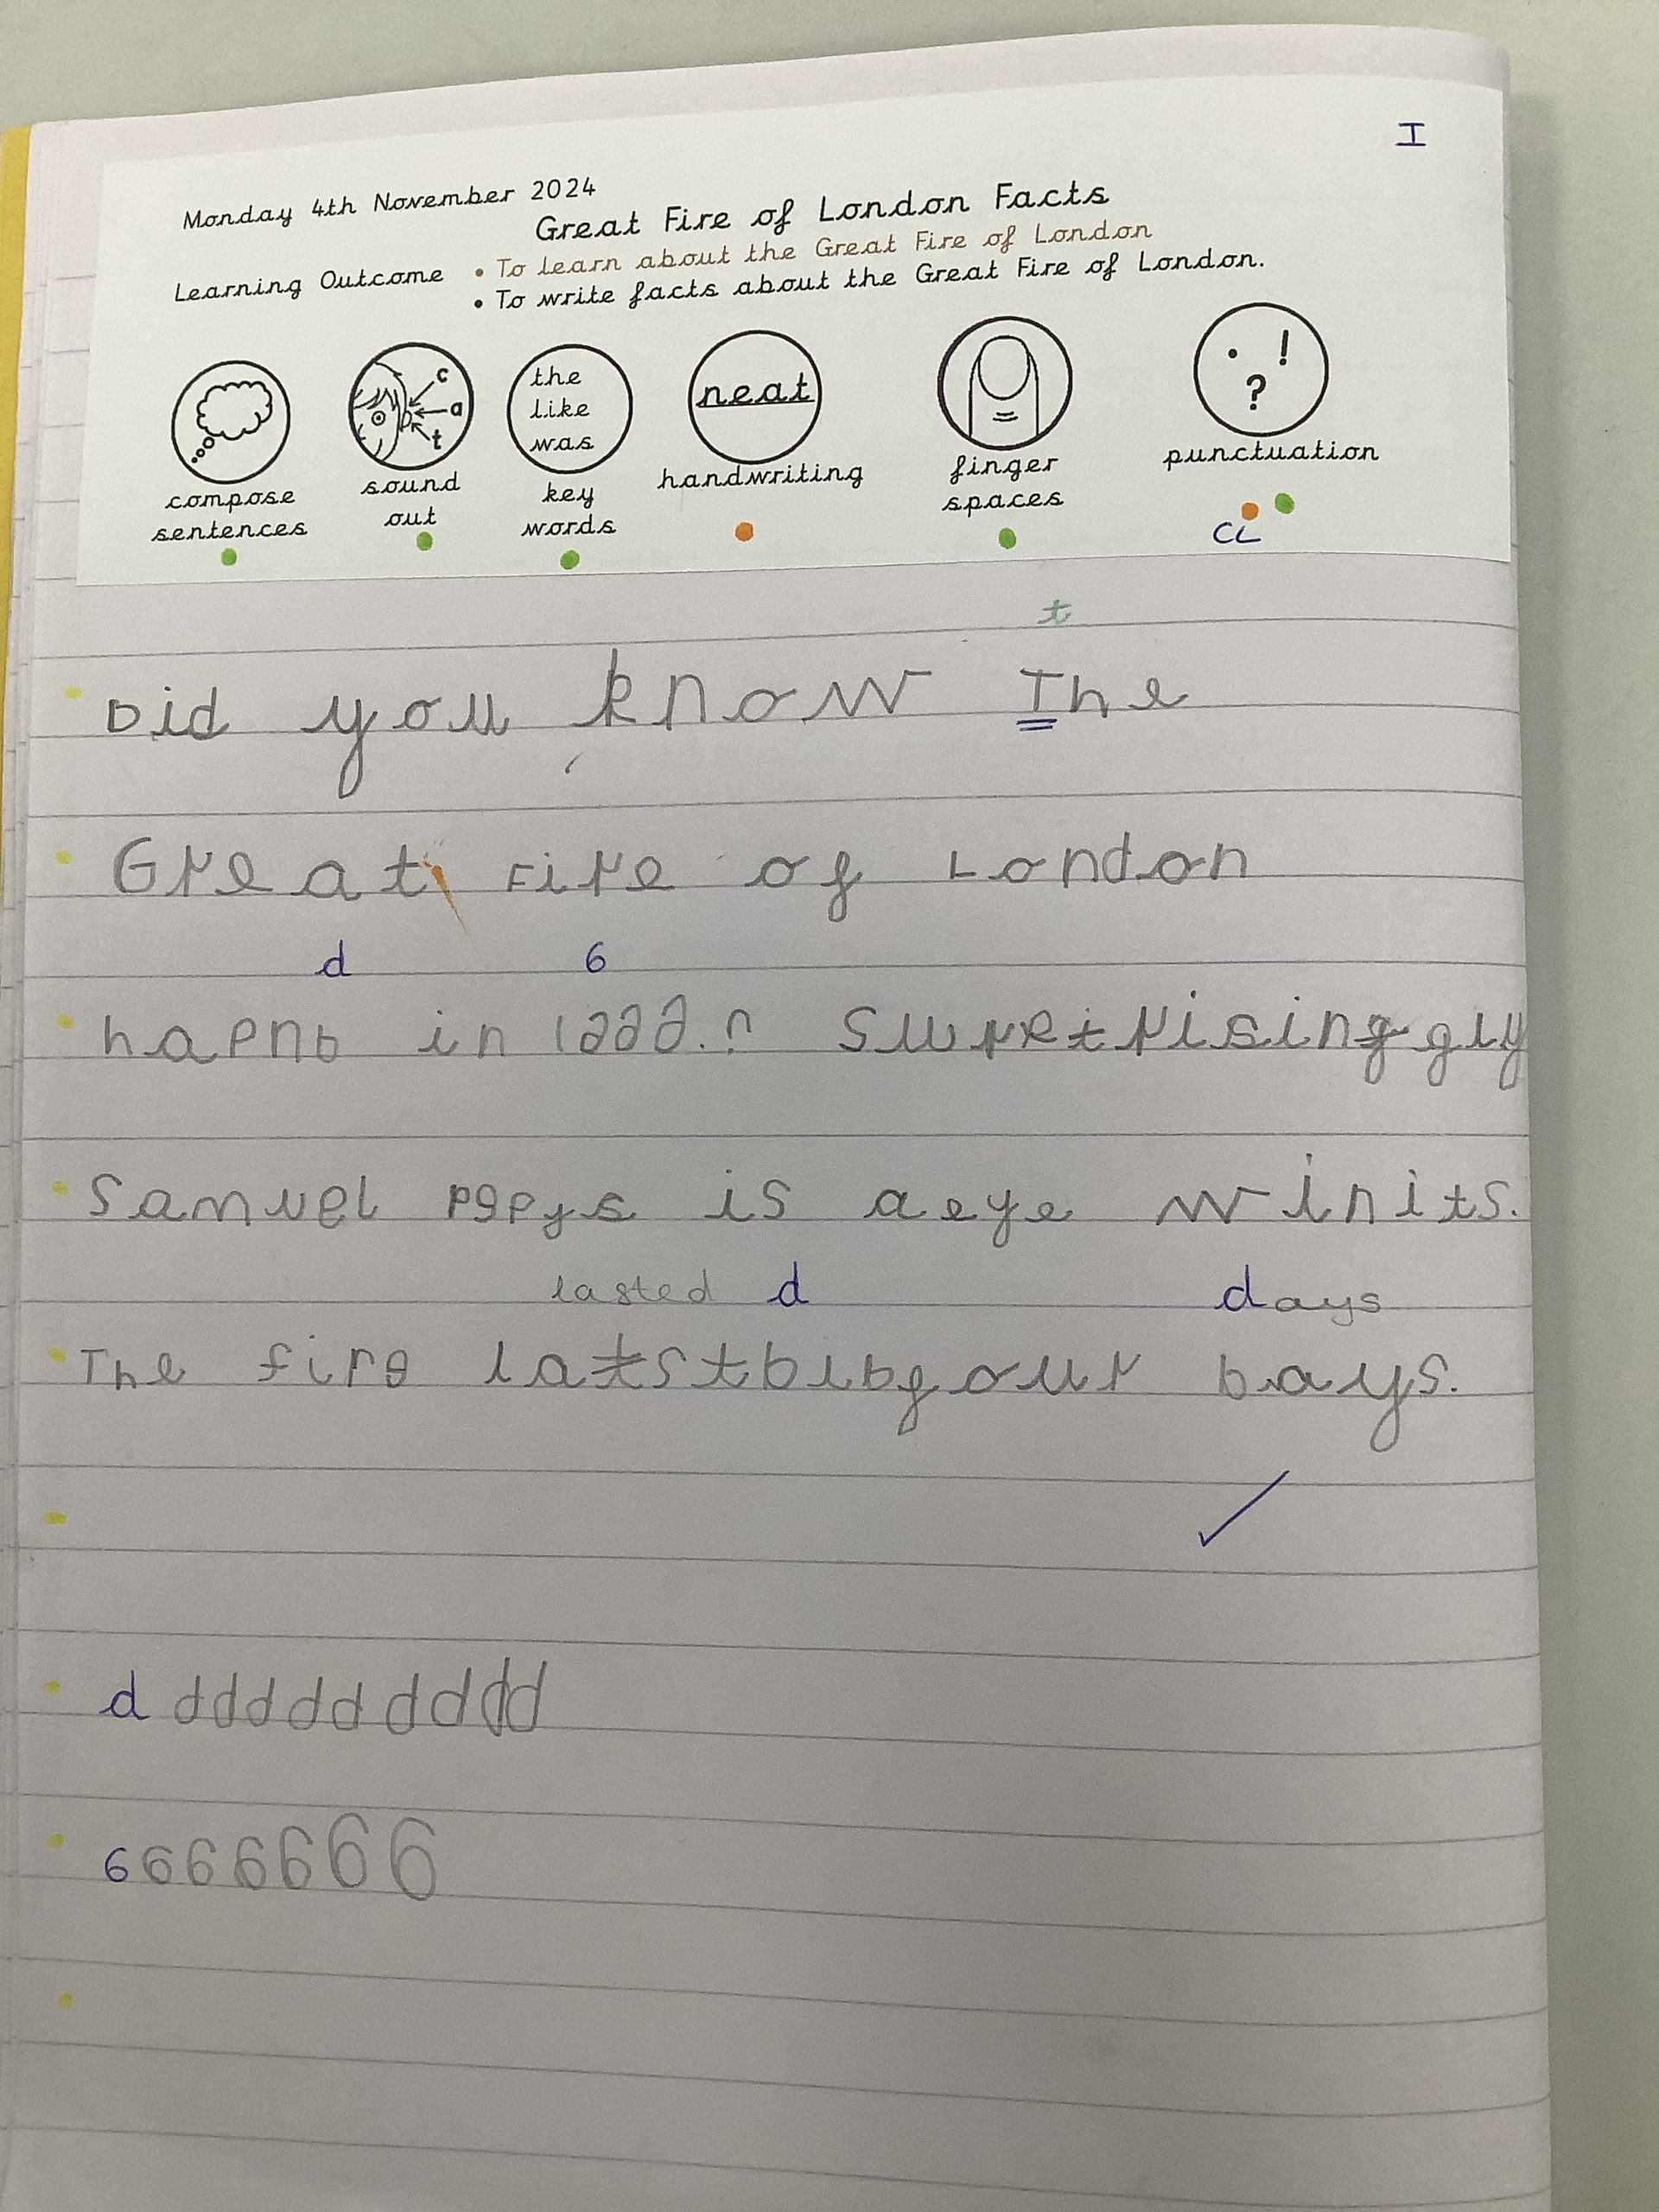 I
Monday 4th November 2024
Great Fire of London Facts
Learning Outcome
• To learn about the Great Fire of London
• To write facts about the Great Fire of London.
c
a
t
the
like
was
neat
. ! ?
compose sentences
sound out
key words
handwriting
finger spaces
punctuation
CL
t
Did you know The
Great Fire of London
d 6
hapnb in 1666.?
Samuel pepys is aeye winits.
lasted d days
The fire bays.
d ddddddddd
6 6666666